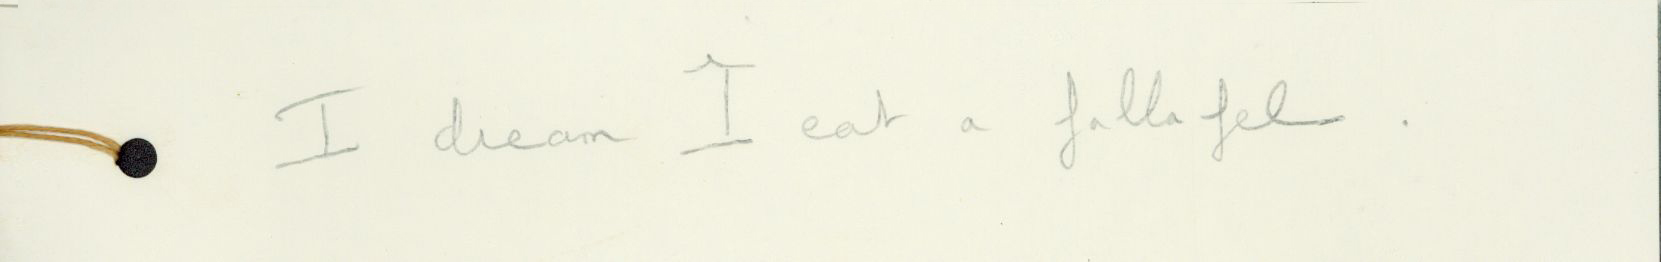 I dream I eat a fallafel .